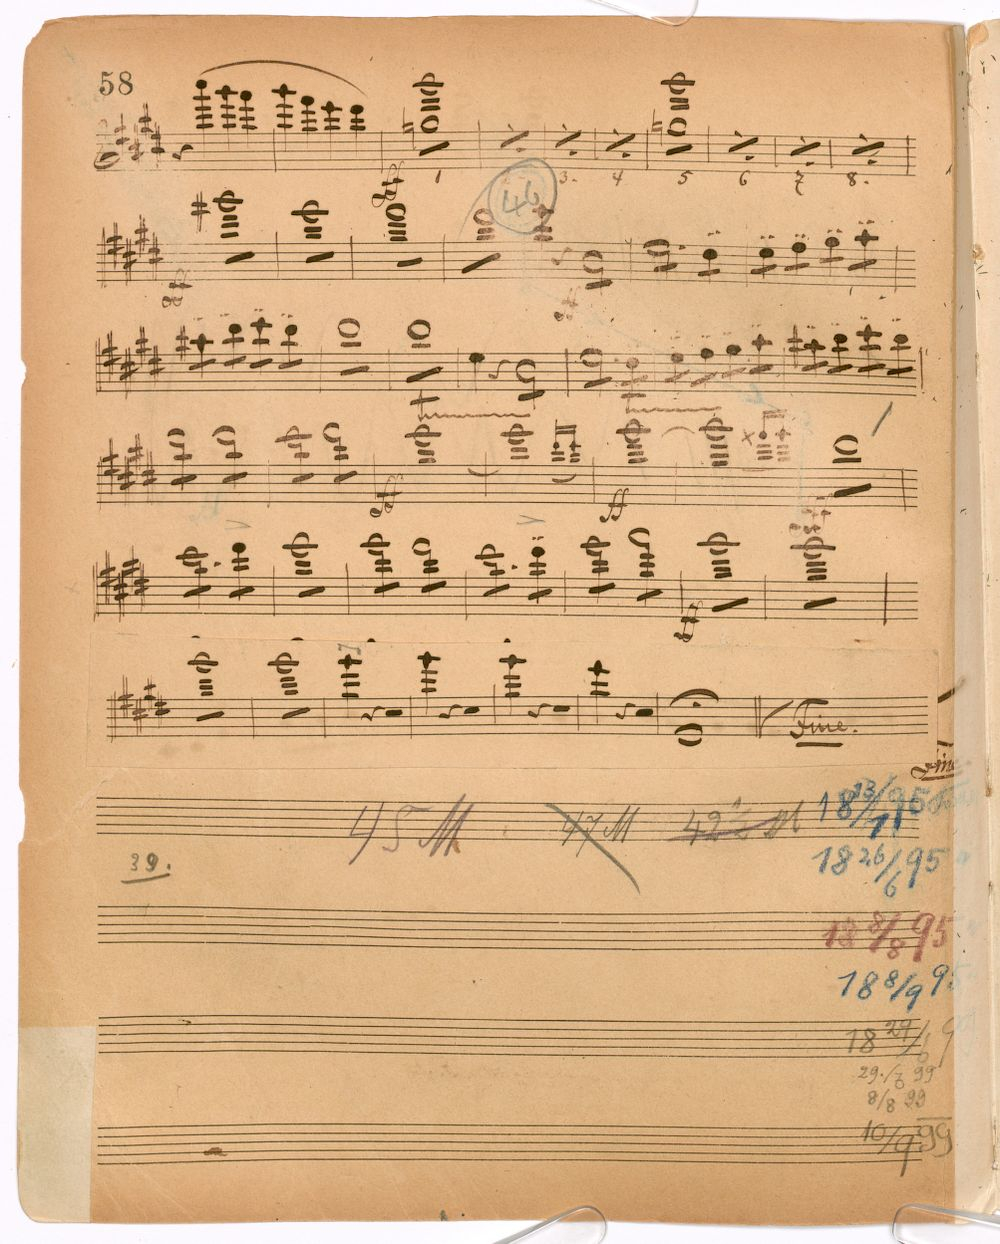 58
ff
1 3. 4 5 6 7 8.
46
ff
ff
ff
ff
ff
ff
Fine.
Fine
45 M 47 M 18 13/7 95
39.
18 26/6 95
18 8/8 95
18 8/9 95
18 29/6 9
29./6 99
8/8 99
10/9 99